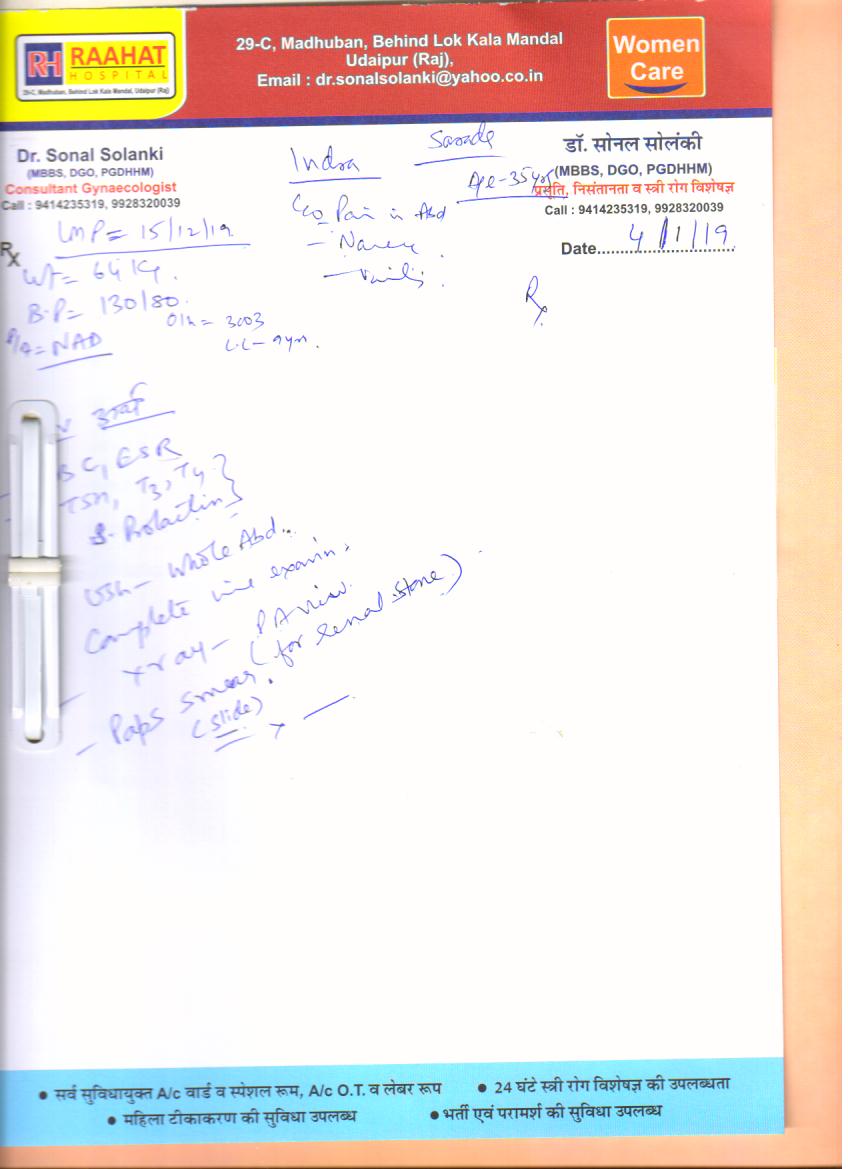 RH RAAHAT
HOSPITAL
29-C, Madhuban, Behind Lok Kala Mandal, Udaipur (Raj)
29-C, Madhuban, Behind Lok Kala Mandal
Udaipur (Raj),
Email : dr.sonalsolanki@yahoo.co.in
Women
Care
Dr. Sonal Solanki
(MBBS, DGO, PGDHHM)
Consultant Gynaecologist
Call : 9414235319, 9928320039
डॉ. सोनल सोलंकी
(MBBS, DGO, PGDHHM)
प्रसूति, निसंतानता व स्त्री रोग विशेषज्ञ
Call : 9414235319, 9928320039
Date 4/1/19
Indra
Age-35yrs
C/o Pain in Abd
Rx
LMP = 15/12/19
Wt = 64 Kg.
B.P = 130/80.
P/A = NAD
O/H = 3003
L.C - 9yr.
Rx
BC, ESR
TSH, T3, T4
S. Prolactin
USG - Whole Abd..
Complete examin.
Xray - PA view.
(for renal stone)
- Paps smear.
(slide)
• सर्व सुविधायुक्त A/c वार्ड व स्पेशल रूम, A/c O.T. व लेबर रूप • 24 घंटे स्त्री रोग विशेषज्ञ की उपलब्धता
• महिला टीकाकरण की सुविधा उपलब्ध • भर्ती एवं परामर्श की सुविधा उपलब्ध